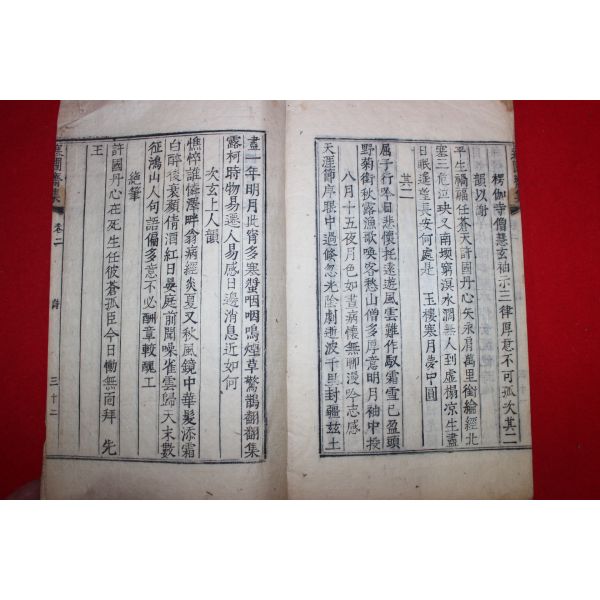 楞伽寺僧慧玄袖示三律厚意不可孤次其二
韻以謝
平生禍福任蒼天許國丹心矢永肩萬里銜綸經北
塞三危泣玦又南堧窮溟水濶無人到虛榻凉生盡
日眠遙望長安何處是 玉樓寒月夢中圓
其二
屈子行吟日悲懷托遠遊風雲難作馭霜雪已盈頭
野菊銜秋露漁歌喚客愁山僧多厚意明月袖中投
八月十五夜月色如晝病懷無聊漫吟志感
天涯節序眼中過倏忽光陰劇逝波千里封疆玆土
盡一年明月此宵多寒螿咽咽鳴煙草驚鵲翻翻集
露柯時物易遷人易感日邊消息近如何
次玄上人韻
憔悴誰憐澤畔翁病經炎夏又秋風鏡中華髮添霜
白醉後衰顏倩酒紅日晏庭前聞噪雀雲歸天末數
征鴻山人句語偏多意不必酬章較醜工
絶筆
許國丹心在死生任彼蒼孤臣今日慟無面拜 先
王
卷二
三十二